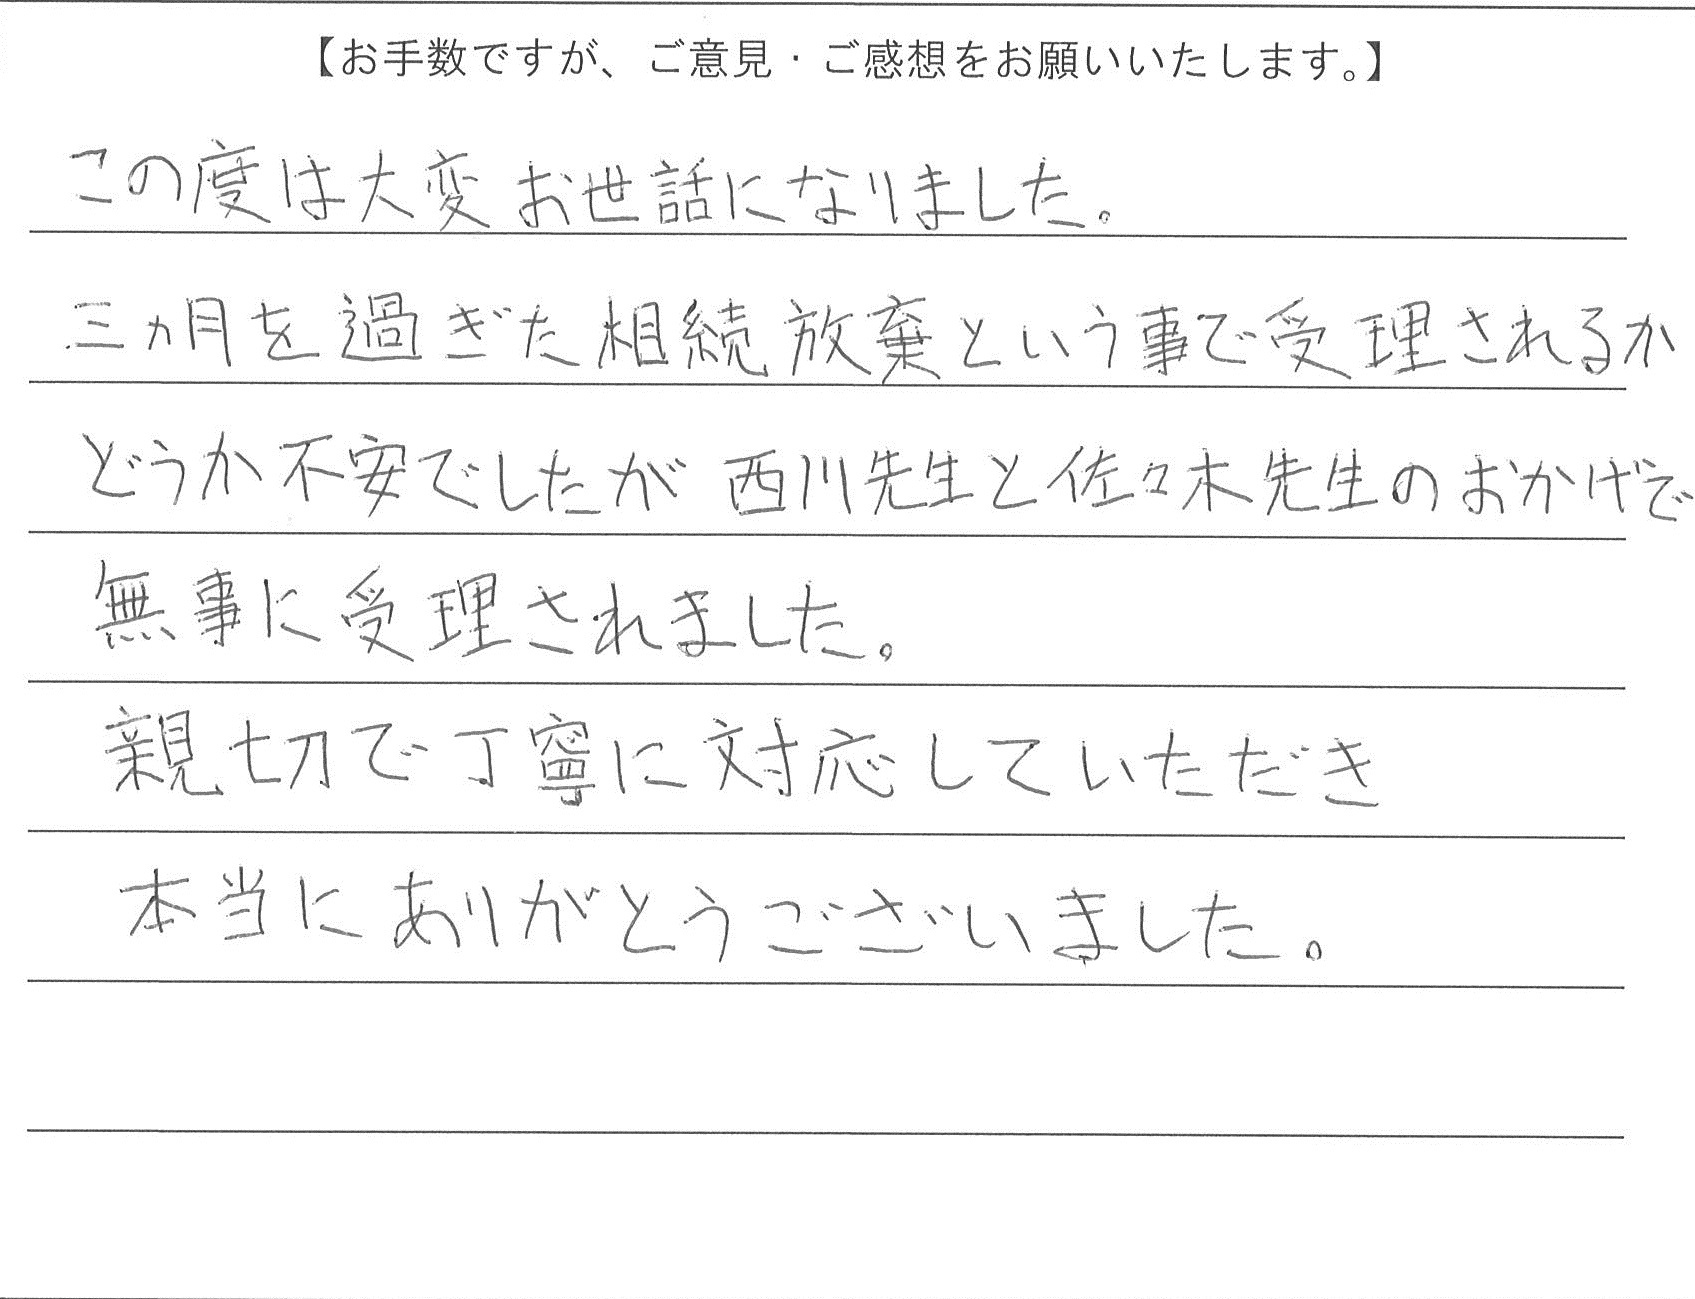 【お手数ですが、ご意見・ご感想をお願いいたします。】
この度は大変お世話になりました。
三ヵ月を過ぎた相続放棄という事で受理されるか
どうか不安でしたが西川先生と佐々木先生のおかげで
無事に受理されました。
親切で丁寧に対応していただき
本当にありがとうございました。